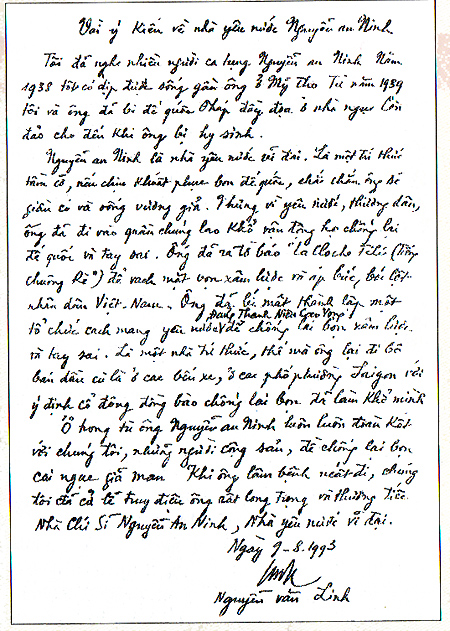 Vài ý kiến về nhà yêu nước Nguyễn an Ninh
Tôi đã nghe nhiều người ca tụng Nguyễn an Ninh. Năm
1938 tôi có dịp được sống gần ông ở Mỹ Tho. Từ năm 1939
tôi và ông đã bị đế quốc Pháp đày đọa ở nhà ngục Côn
đảo cho đến khi ông bị hy sinh.
Nguyễn an Ninh là nhà yêu nước vĩ đại. Là một trí thức
tầm cỡ, nếu chịu khuất phục bọn đế quốc, chắc chắn ông sẽ
giàu có và sống vương giả. Nhưng vì yêu nước, thương dân,
ông đã đi vào quần chúng lao khổ vận động họ chống lại
đế quốc và tay sai. Ông đã ra tờ báo "La Cloche Fêlée (Tiếng
chuông Rè") để vạch mặt bọn xâm lược và áp bức, bóc lột
nhân dân Việt-Nam. Ông đã bí mật thành lập một
Đảng Thanh Niên Cao Vọng
tổ chức cách mạng yêu nước để chống lại bọn xâm lược
và tay sai. Là một nhà trí thức, thế mà ông lại đi bộ
bán dầu cù là ở các bến xe, ở các phố phường Saigon với
ý định cổ động đồng bào chống lại bọn đè đầu mình
Ở trong tù ông Nguyễn an Ninh luôn luôn đoàn kết
với chúng tôi, những người cộng sản, để chống lại bọn
cai ngục giã man. Khi ông lâm bệnh mất đi, chúng
tôi đã cử lễ truy điệu ông rất long trọng và thương tiếc
Nhà Chí Sĩ Nguyễn An Ninh, Nhà yêu nước vĩ đại.
Ngày 9-8.1993
Nguyễn văn Linh